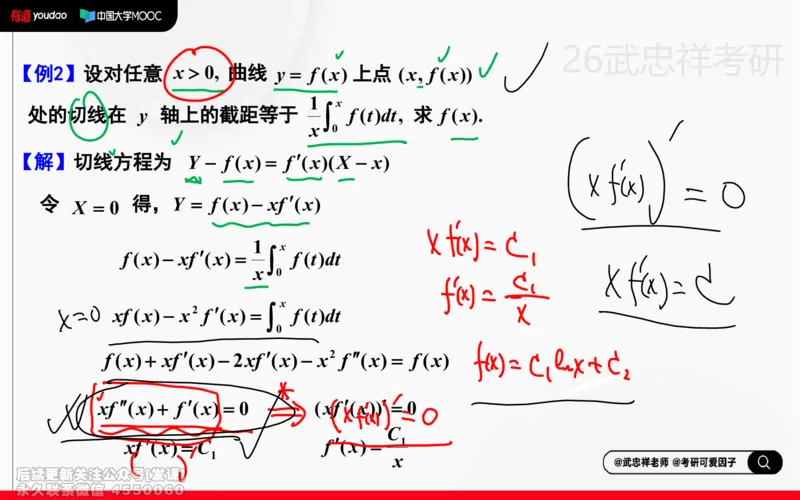 有道 youdao 中国大学MOOC
26武忠祥考研
【例2】设对任意 x > 0, 曲线 y = f(x) 上点 (x, f(x))
处的切线在 y 轴上的截距等于 1/x ∫₀ˣ f(t)dt, 求 f(x).
【解】切线方程为 Y − f(x) = f′(x)(X − x)
令 X = 0 得, Y = f(x) − xf′(x)
f(x) − xf′(x) = 1/x ∫₀ˣ f(t)dt
x=0 xf(x) − x²f′(x) = ∫₀ˣ f(t)dt
f(x) + xf′(x) − 2xf′(x) − x²f″(x) = f(x)
xf″(x) + f′(x) = 0 * ⇒ (xf′(x))′ = 0
(xf′(x))′ = 0
xf′(x) = C₁ f′(x) = C₁/x
( )′
(x f′(x))′ = 0
x f′(x) = C
x f′(x) = C₁
f′(x) = C₁/x
f(x) = C₁ ln x + C₂
后续更新关注公众号[发课]
永久联系微信 4550060
@武忠祥老师 @考研可爱因子